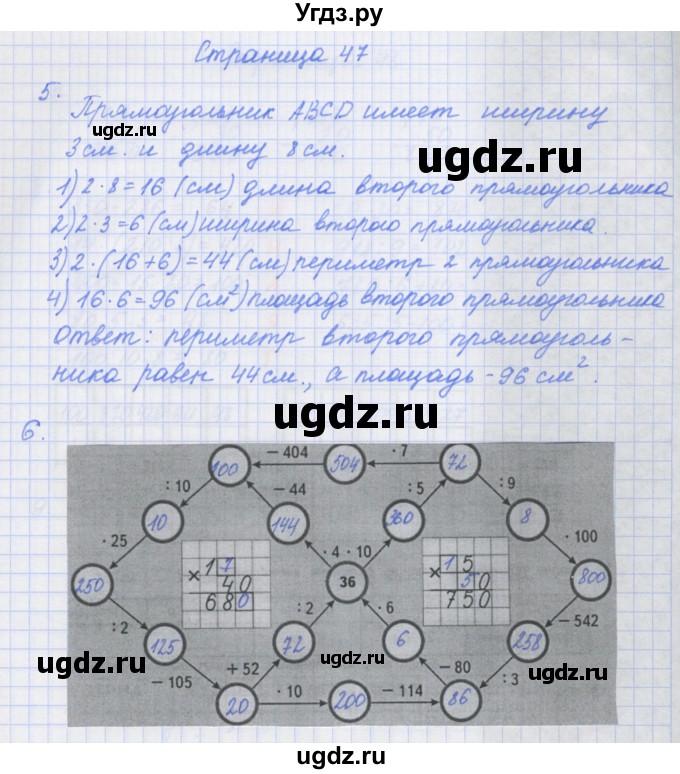 Угдз.ру
Страница 47
5.
Прямоугольник ABCD имеет ширину
3 см. и длину 8 см.
1) 2 · 8 = 16 (см) длина второго прямоугольника
2) 2 · 3 = 6 (см) ширина второго прямоугольника.
3) 2 · (16 + 6) = 44 (см) периметр 2 прямоугольника
4) 16 · 6 = 96 (см²) площадь второго прямоугольника
Ответ: периметр второго прямоуголь-
ника равен 44 см., а площадь - 96 см².
6.
100 − 404 504 · 7 72
: 10 − 44 : 5 : 9
10 144 360 8
· 25 · 4 · 10 · 100
× 17 40 680
× 15 50 750
250 36 800
: 2 : 2 · 6 − 542
125 72 6 258
− 105 + 52 − 80 : 3
20 · 10 200 − 114 86
ugdz.ru
ugdz.ru
ugdz.ru
ugdz.ru
ugdz.ru
ugdz.ru
ugdz.ru
ugdz.ru
ugdz.ru
ugdz.ru